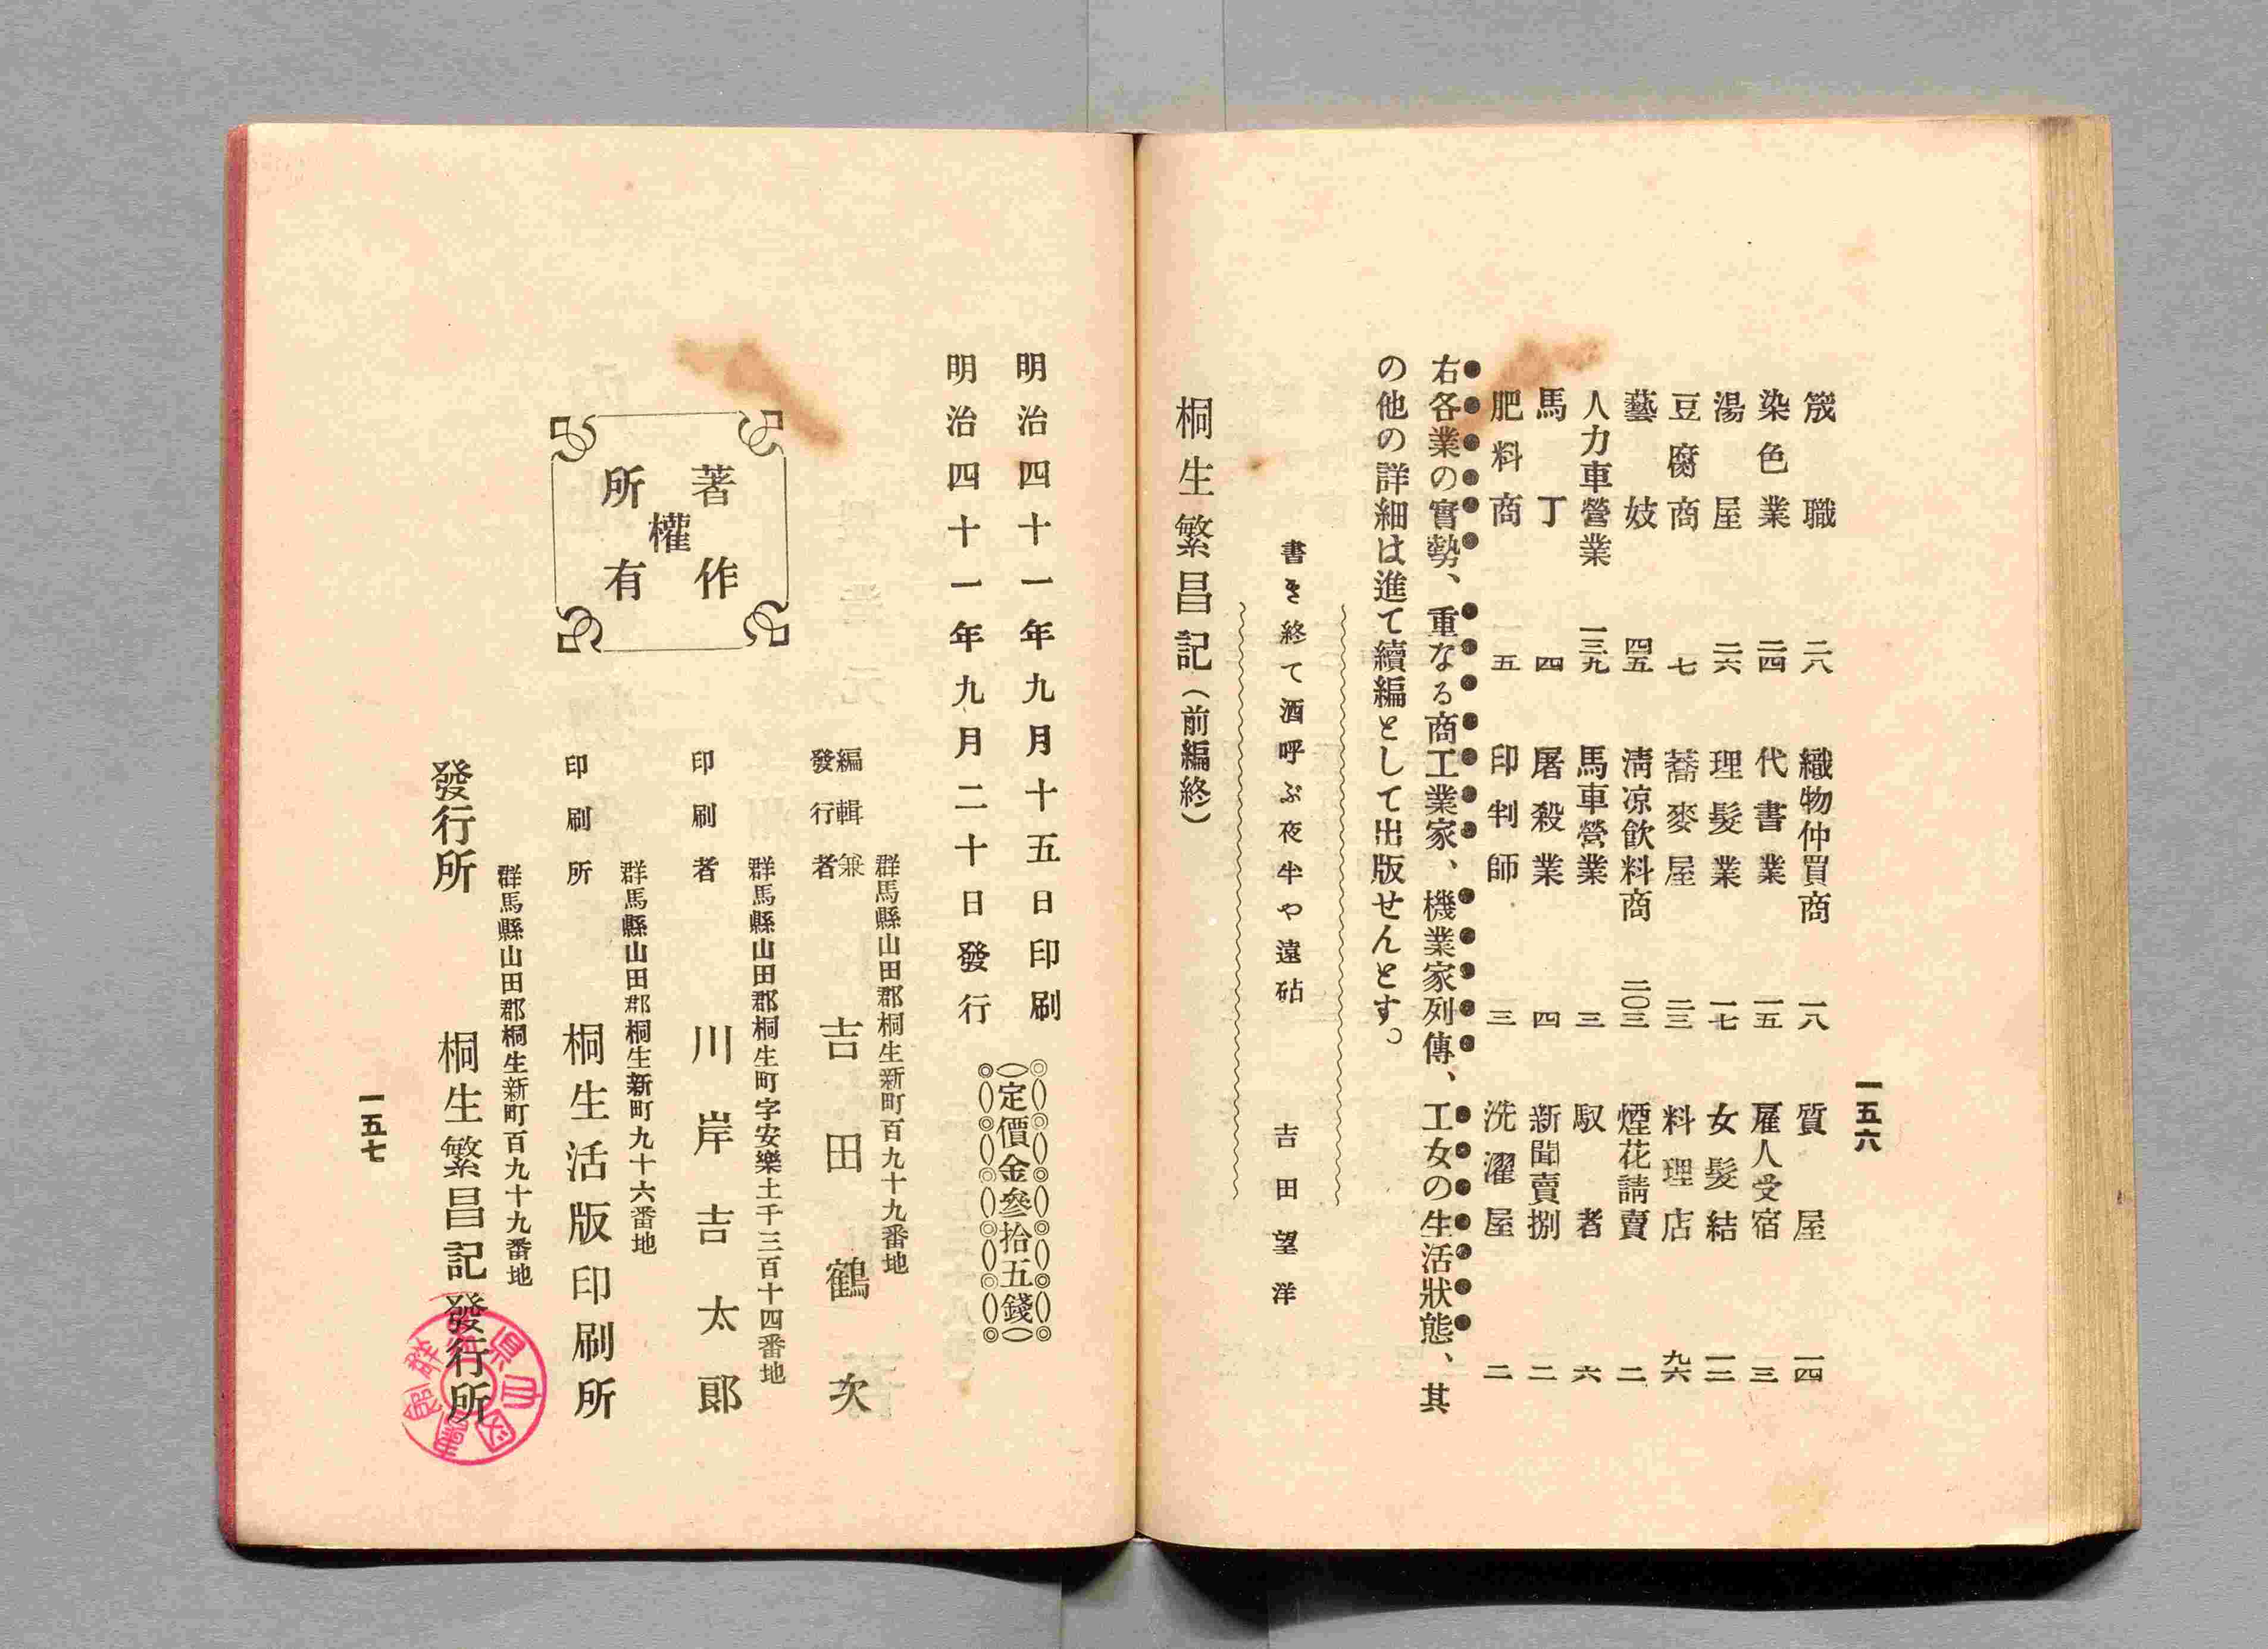 一五六
筬職 二八 織物仲買商 一八 質屋 一四
染色業 二四 代書業 一五 雇人受宿 三
湯屋 二六 理髮業 一七 女髮結 一二
豆腐商 七 蕎麥屋 二三 料理店 九六
藝妓 四五 淸凉飮料商 二〇三 煙花請賣 二
人力車營業 一三九 馬車營業 三 馭者 六
馬丁 四 屠殺業 四 新聞賣捌 二
肥料商 五 印判師 三 洗濯屋 二
右各業の實勢、重なる商工業家、機業家列傳、工女の生活狀態、其
の他の詳細は進て續編として出版せんとす。
書き終て酒呼ぶ夜半や遠砧 吉田望洋
桐生繁昌記（前編終）
明治四十一年九月十五日印刷
明治四十一年九月二十日發行
定價金參拾五錢
著作權所有
群馬縣山田郡桐生新町百九十九番地
編輯兼發行者 吉田鶴次
群馬縣山田郡桐生町字安樂土千三百十四番地
印刷者 川岸吉太郎
群馬縣山田郡桐生新町九十六番地
印刷所 桐生活版印刷所
群馬縣山田郡桐生新町百九十九番地
發行所 桐生繁昌記發行所
群馬県立図書館
一五七